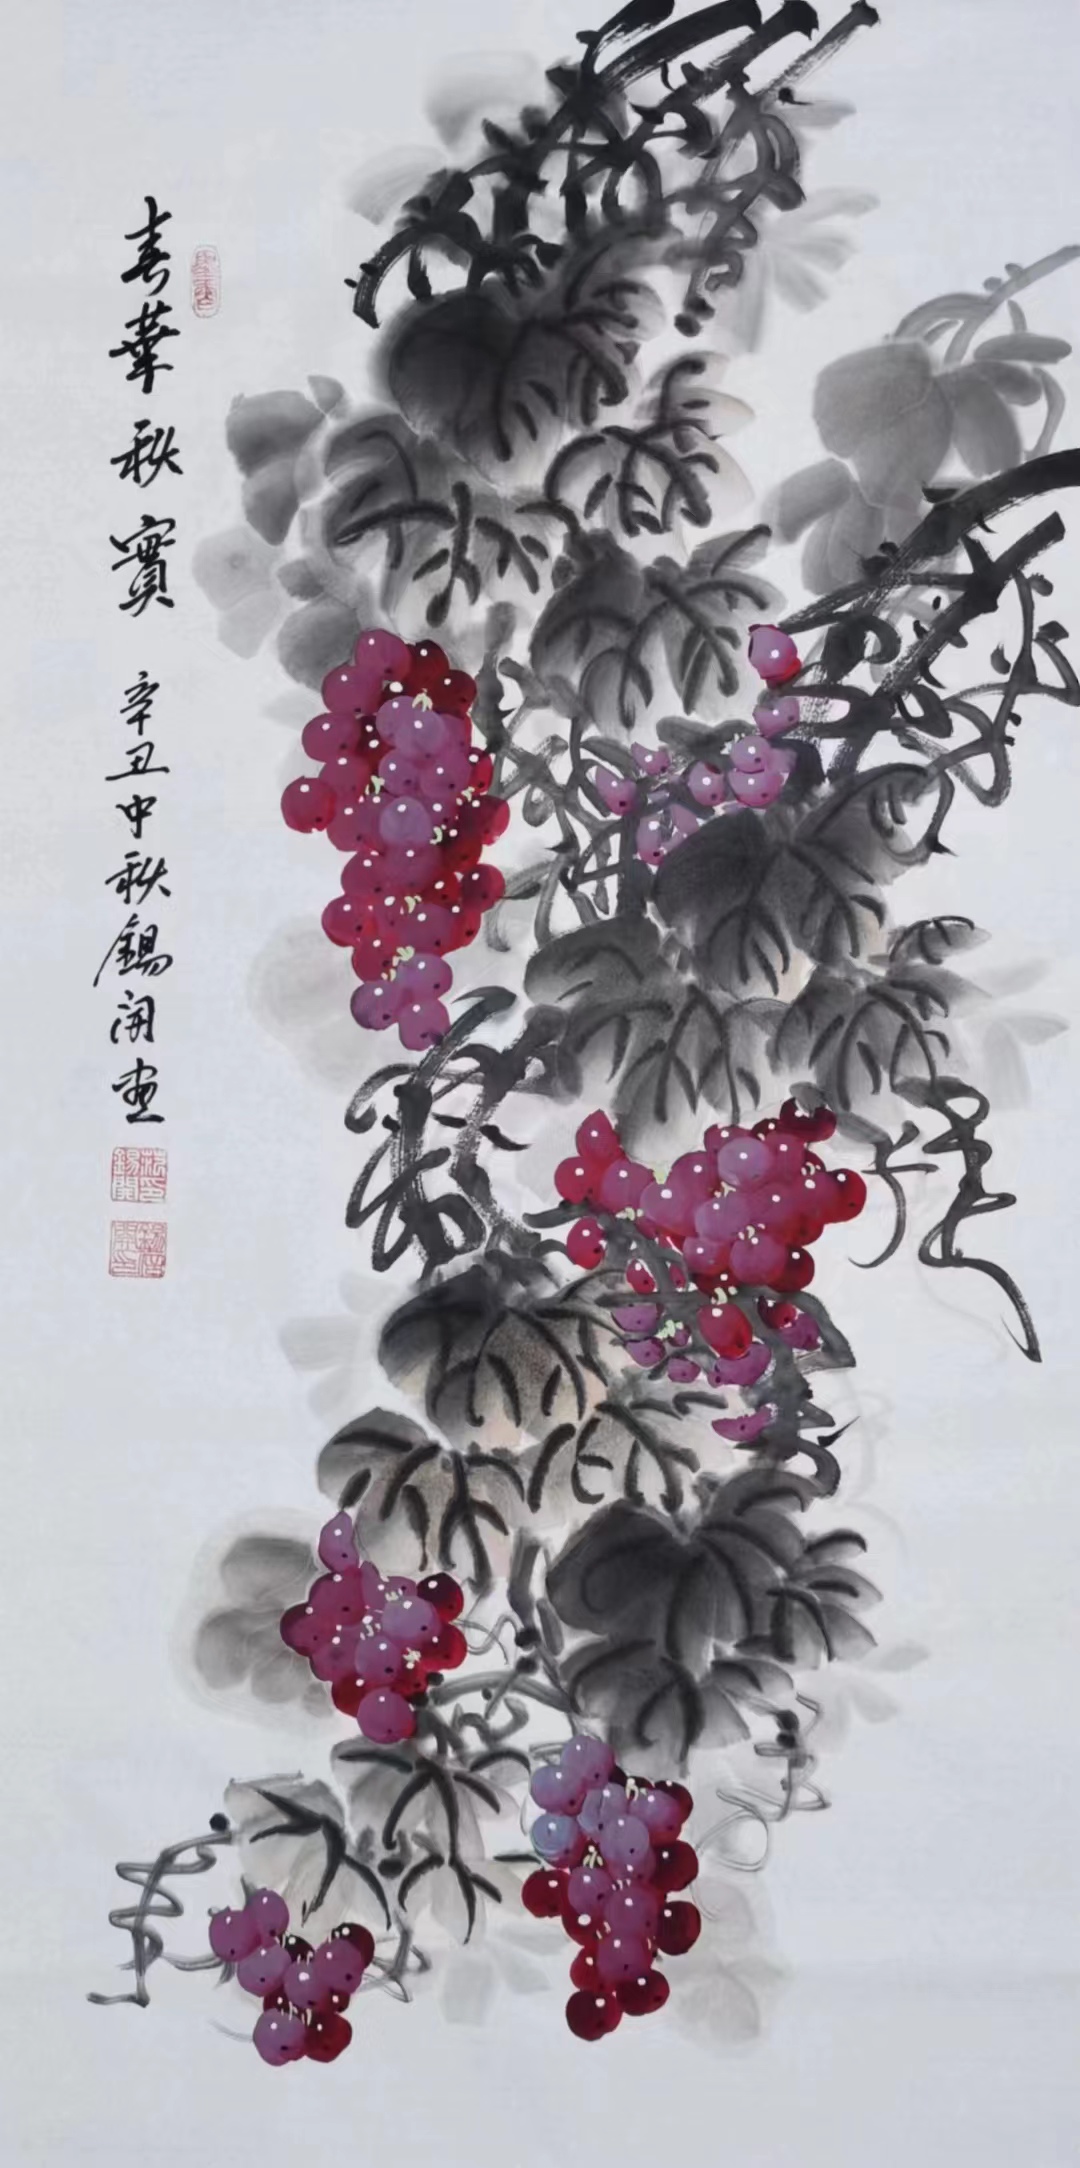 春華秋實 辛丑中秋錫開畫